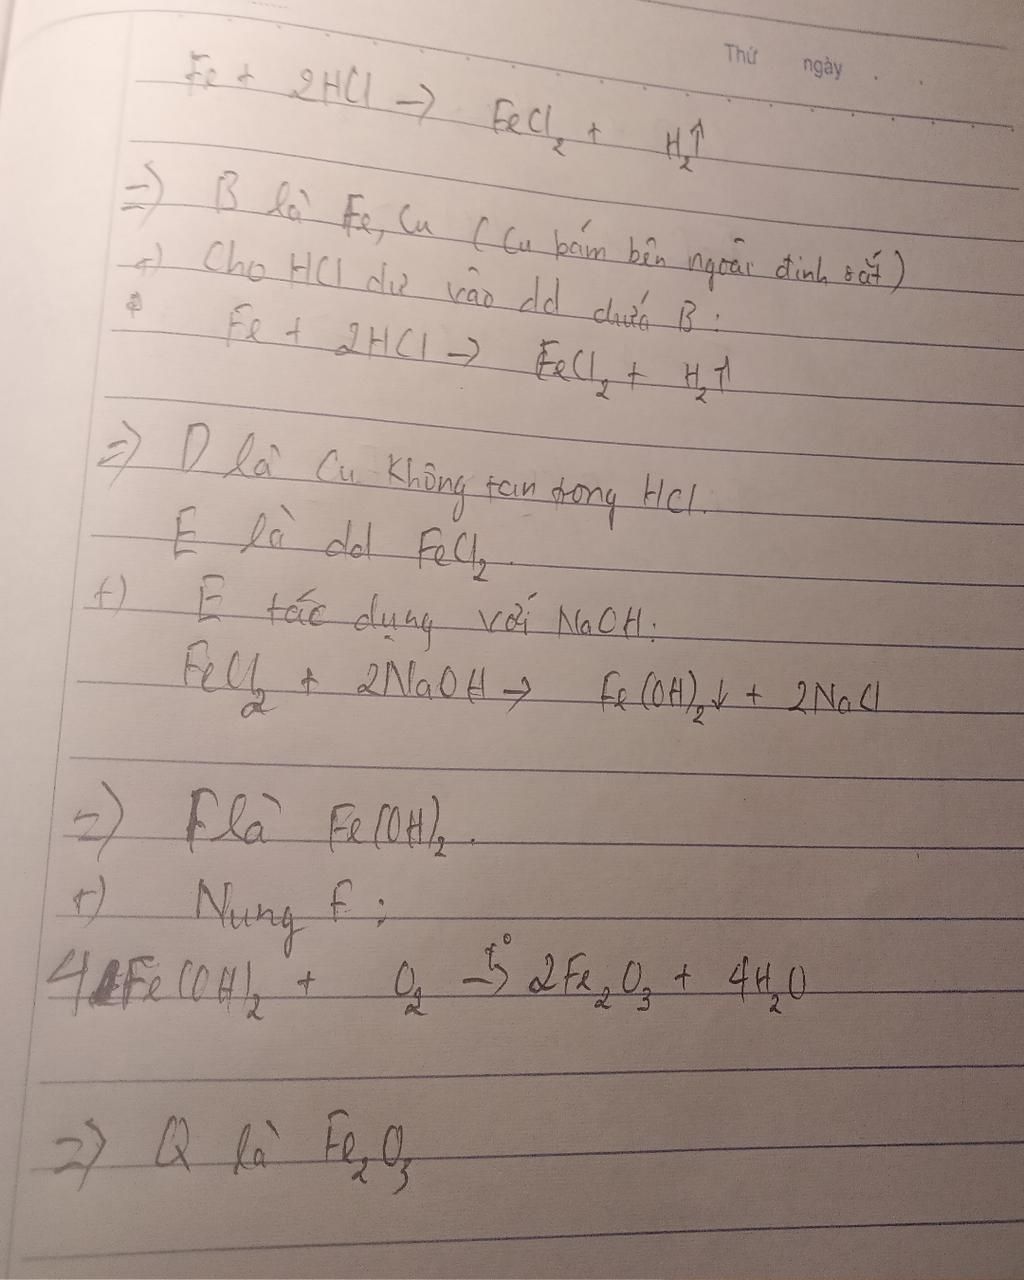 Thứ ngày . .
Fe + 2HCl → FeCl₂ + H₂↑
=) B là Fe, Cu (Cu bám bên ngoài đinh sắt)
+) Cho HCl dư vào dd chứa B:
Fe + 2HCl → FeCl₂ + H₂↑
=) D là Cu không tan trong HCl.
E là dd FeCl₂.
+) E tác dụng với NaOH:
FeCl₂ + 2NaOH → Fe(OH)₂↓ + 2NaCl
=) F là Fe(OH)₂.
+) Nung F:
4Fe(OH)₂ + O₂ →t° 2Fe₂O₃ + 4H₂O
=) Q là Fe₂O₃